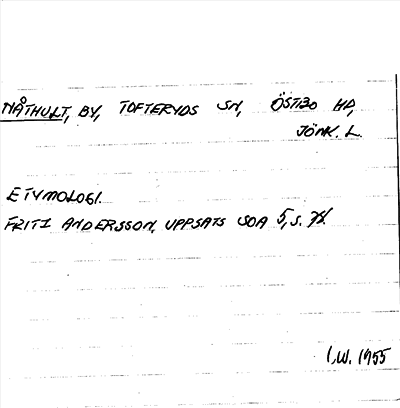 NÅTHULT, BY, TOFTERYDS SN, ÖSTBO HD,
JÖNK. L.
ETYMOLOGI.
FRITZ ANDERSSON, UPPSATS SOA 5, S.
I.W. 1955